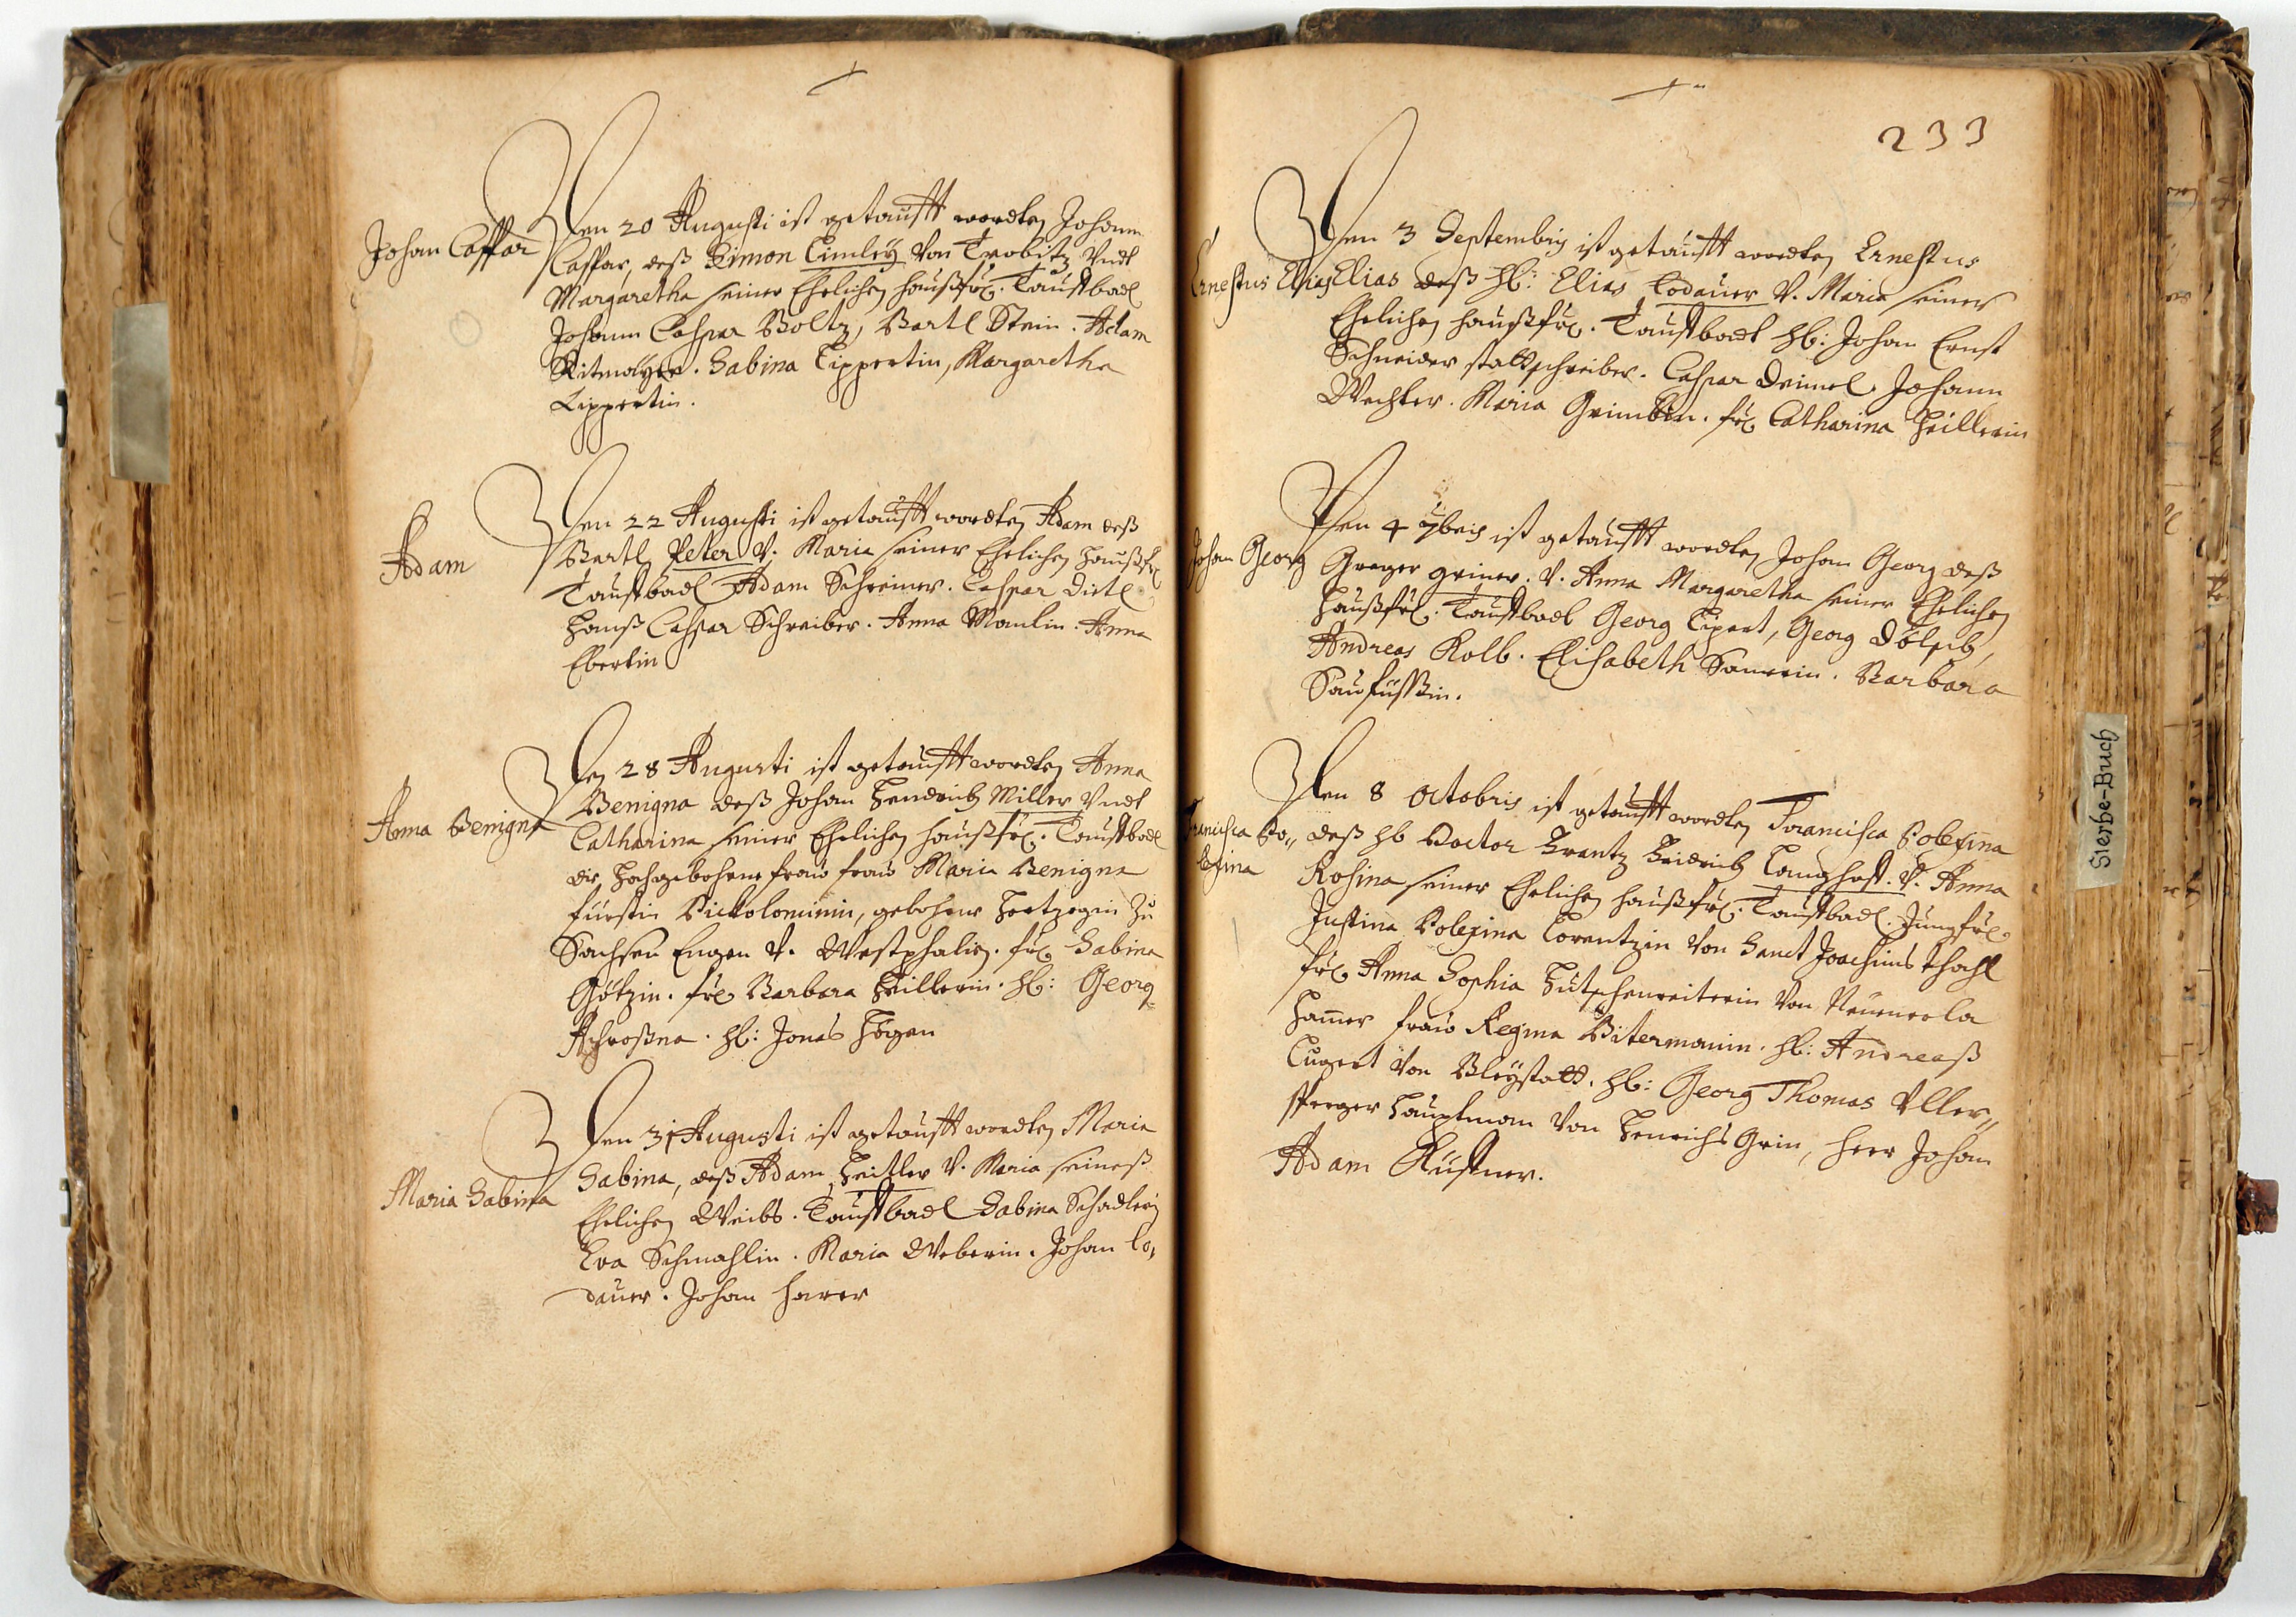 Johan Caspar
Den 20 Augusti ist getaufft worden Johann
Caspar, deß Simon Limley von Trobitz vndt
Margaretha seiner Ehelichen Haußfr. Tauffbadl
Johann Caspar Boltz, Bartl Stein. Adam
Ritmayer. Sabina Lippertin, Margaretha
Lippertin.
Adam
Den 22 Augusti ist getaufft worden Adam deß
Bartl Peter V. Maria seiner Ehelichen Haußfr
Tauffbadl Adam Schreiner. Caspar Dietl
Hanß Caspar Schreiber. Anna Manlin. Anna
Ebertin
Anna Benigna
Den 28 Augusti ist getaufft worden Anna
Benigna deß Johan Hendrich Miller vndt
Catharina seiner Ehelichen haußfr. Tauffbadl
die Hochgebohrne fraw fraw Maria Benigna
Fürstin Pickolominin, gebohrne Hertzogin Zu
Sachsen Engern V. Westphalen. fr Sabina
Götzin. fr Barbara Heillerin. H: Georg
H: Jonas Högen
Maria Sabina
Den 31 Augusti ist getaufft worden Maria
Sabina, deß Adam Heitler V. Maria seineß
Ehelichen Weibs. Tauffbadl Sabina Schadlerin
Eva Schmahlin. Maria Weberin. Johan Lo,
dauer. Johan Harer
233
Ernestus Elias
Den 3 Septembris ist getaufft worden Ernestus
Elias deß H: Elias Lodauer V. Maria seiner
Ehelichen haußfr. Tauffbadl H: Johan Ernst
Schneider stattschreiber. Caspar Deimel Johann
Wechter. Maria Grimbin. fr Catharina Heillerin
Johan Georg
Den 4 7bris ist getaufft worden Johan Georg deß
Greger Griner. V. Anna Margaretha seiner Ehelichen
Haußfr. Tauffbadl Georg Lipert, Georg Dölsch,
Andreas Kolb. Elisabeth Sanerin. Barbara
Saufüssin.
Francisca Po"
lexina
Den 8 Octobris ist getaufft worden Francisca Polexina
deß H Doctor Frantz Fridrich Langhaß. V. Anna
Rosina seiner Ehelichen haußfr. Tauffbadl. Jungfr
Justina Polexina Lorentzin von Sanct Joachims thahl
fr Anna Sophia Hutschenreiterin von Neuerola
Hamer fraw Regina Bitermanin. H: Andreaß
Lugert von Bleystatt. H: Georg Thomas Vller"
sperger Hauptman von Henrichs Grin, Herr Johan
Adam Küstner.
Sterbe-Buch